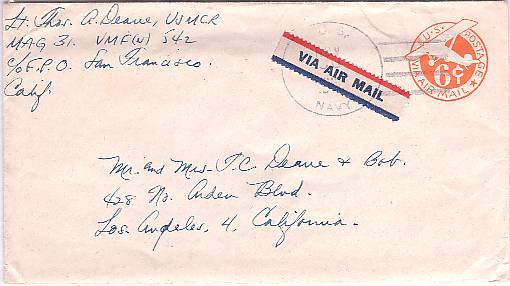 Lt. Thos. A. Deane, USMCR
MAG 31. VMF(N) 542
c/o F.P.O. San Francisco.
Calif.
U.S. POSTAGE
VIA AIR MAIL
6¢
VIA AIR MAIL
NAVY
Mr. and Mrs. T.C. Deane & Bob.
428 No. Arden Blvd.
Los Angeles, 4, California.